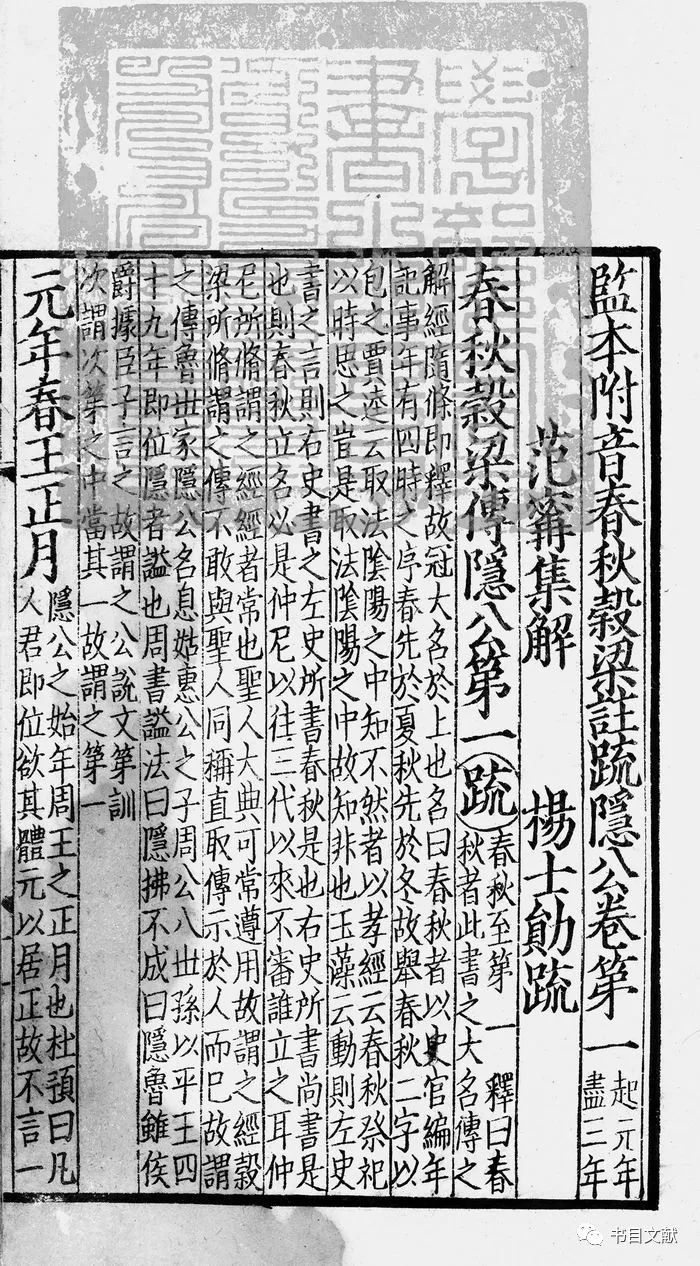 監本附音春秋穀梁註疏隱公卷第一 起元年
盡三年
范甯集解 楊士勛疏
春秋穀梁傳隱公第一 疏 春秋至第一 釋曰春
秋者此書之大名傳之
解經隨條即釋故冠大名於上也名曰春秋者以史官編年
記事年有四時之序春先於夏秋先於冬故舉春秋二字以
包之賈逵云取法陰陽之中知不然者以孝經云春秋祭祀
以時思之豈是取法陰陽之中故知非也玉藻云動則左史
書之言則右史書之左史所書春秋是也右史所書尚書是
也則春秋立名必是仲尼以往三代以來不審誰立之耳仲
尼所脩謂之經經者常也聖人大典可常遵用故謂之經穀
梁所脩謂之傳不敢與聖人同稱直取傳示於人而已故謂
之傳魯世家隱公名息姑惠公之子周公八世孫以平王四
十九年即位隱者謚也周書謚法曰隱拂不成曰隱魯雖侯
爵據臣子言之故謂之公說文第訓
次謂次第之中當其一故謂之第一
元年春王正月 隱公之始年周王之正月也杜預曰凡
人君即位欲其體元以居正故不言一
书目文献